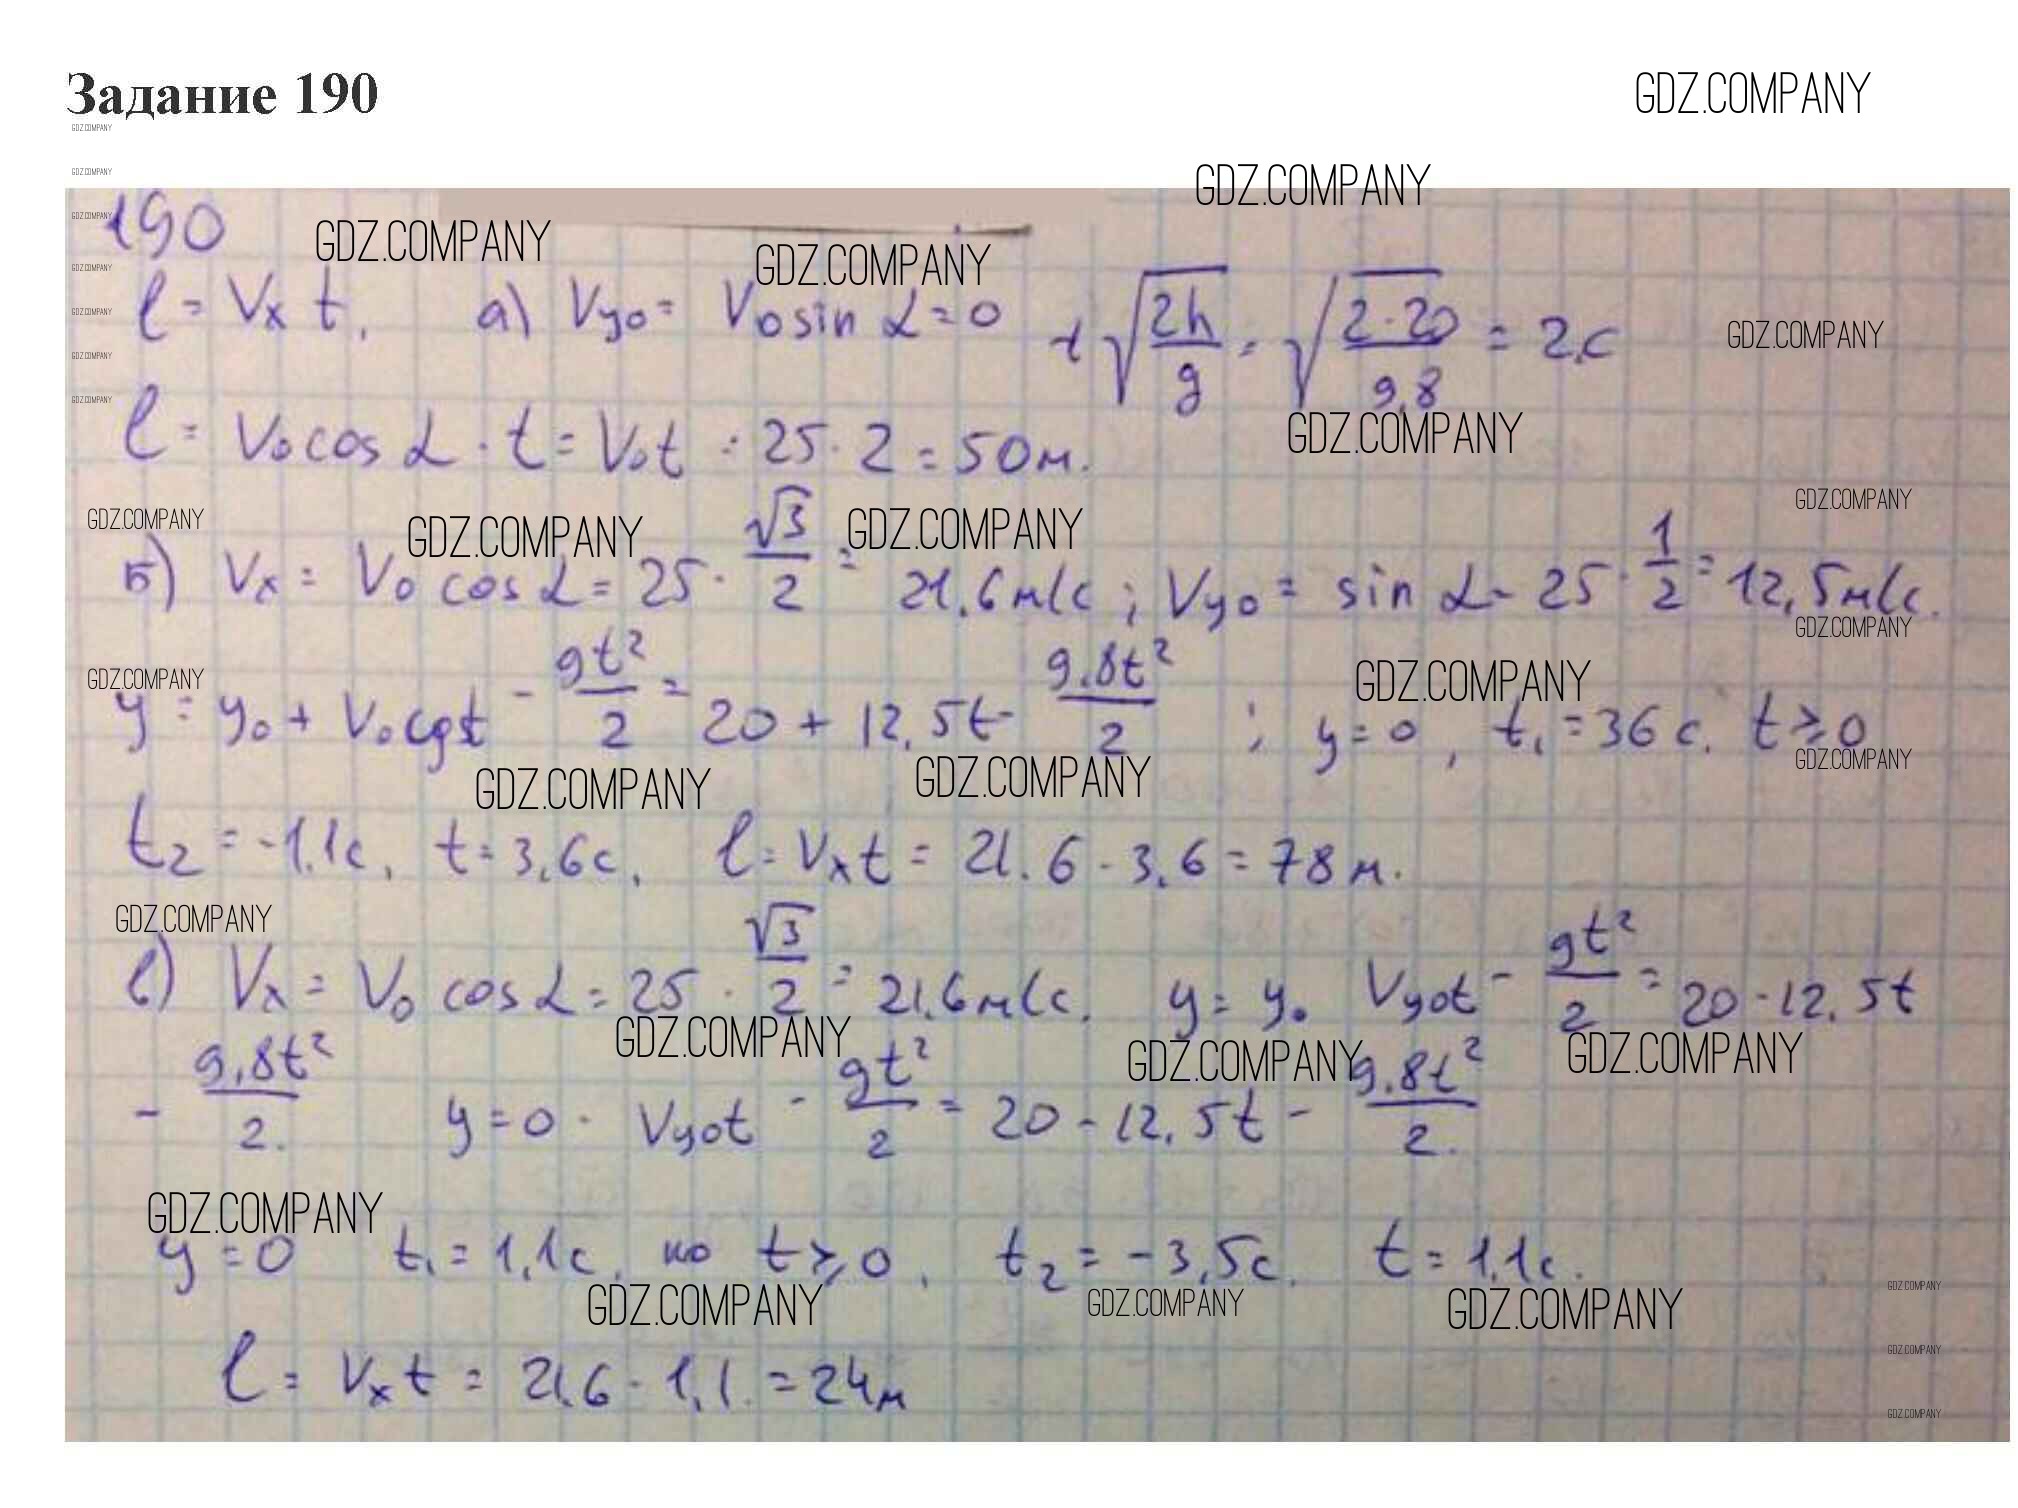 Задание 190
GDZ.COMPANY
190
l = Vx t. а) Vyo = Vo sin α = 0 t √(2h/g) = √(2·20/9,8) = 2.с
l = Vo cos α · t = Vot = 25 · 2 = 50м.
Б) Vx = Vo cos α = 25 · √3/2 = 21.6 м/с ; Vyo = sin α = 25 · 1/2 = 12,5 м/с.
y = yo + Vo t - gt²/2 = 20 + 12,5t - 9.8t²/2 ; y = 0, t1 = 36 с. t ≥ 0
t2 = -1.1с, t = 3,6с. l = Vxt = 21.6 · 3,6 = 78 м.
в) Vx = Vo cos α = 25 · √3/2 = 21,6 м/с. y = yo Vyot - gt²/2 = 20 - 12,5t
- 9,8t²/2. y = 0 - Vyot - gt²/2 = 20 - 12,5t - 9.8t²/2.
y = 0 t1 = 1,1с, но t ≥ 0, t2 = -3,5с. t = 1,1с.
l = Vxt = 21,6 · 1,1. = 24м